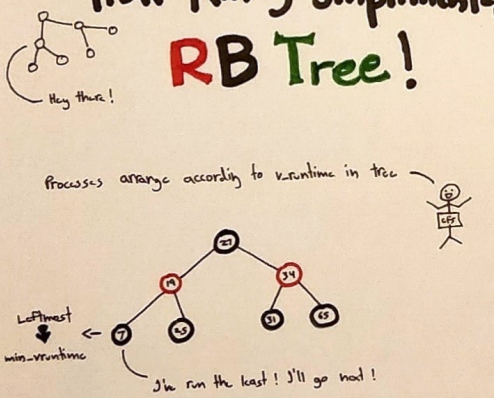 RB Tree!
Hey there!
Processes arrange according to v_runtime in tree
CFS
27
19
34
Leftmost
7
25
31
65
min_vruntime
I've run the least! I'll go next!